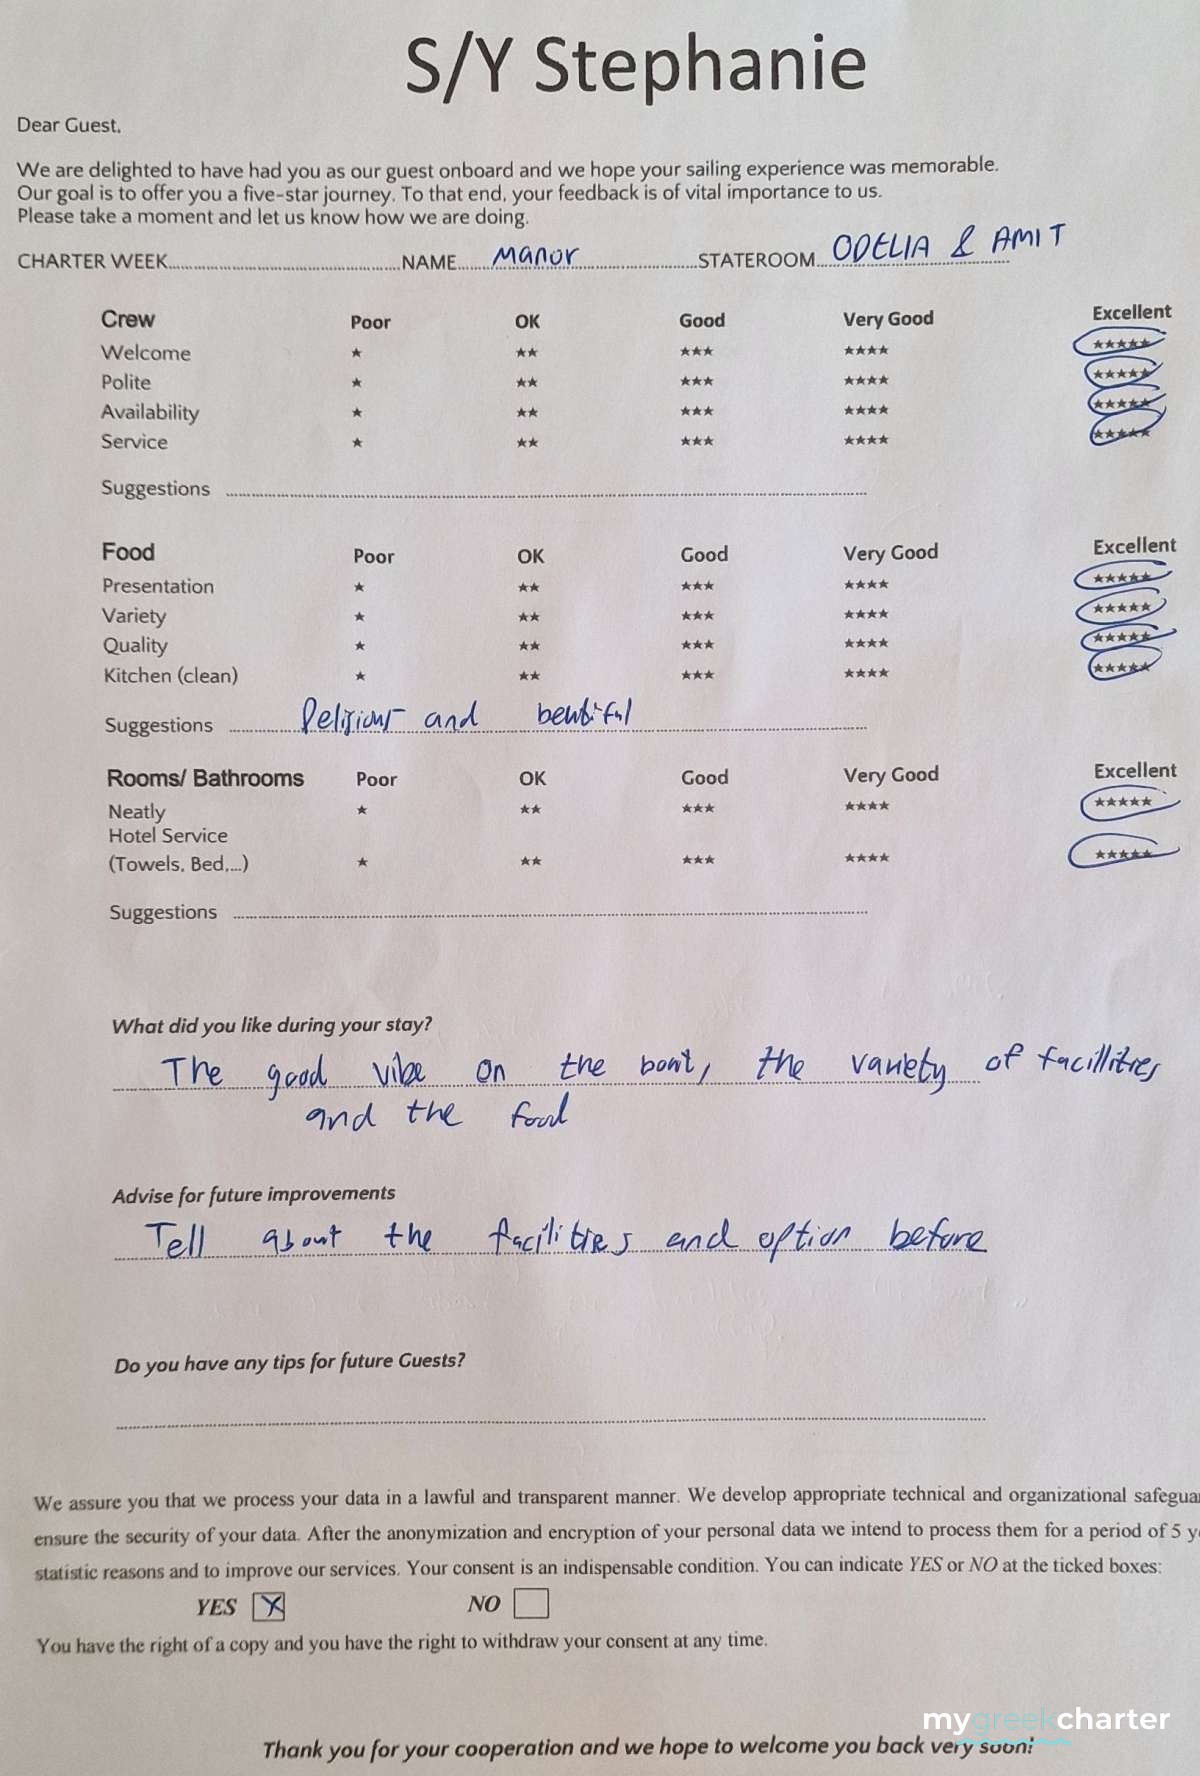 S/Y Stephanie
Dear Guest,
We are delighted to have had you as our guest onboard and we hope your sailing experience was memorable.
Our goal is to offer you a five-star journey. To that end, your feedback is of vital importance to us.
Please take a moment and let us know how we are doing.
CHARTER WEEK NAME Manor STATEROOM ODELIA & AMIT
Crew Poor OK Good Very Good Excellent
Welcome ★ ★★ ★★★ ★★★★ ★★★★★
Polite ★ ★★ ★★★ ★★★★ ★★★★★
Availability ★ ★★ ★★★ ★★★★ ★★★★★
Service ★ ★★ ★★★ ★★★★ ★★★★★
Suggestions
Food Poor OK Good Very Good Excellent
Presentation ★ ★★ ★★★ ★★★★ ★★★★★
Variety ★ ★★ ★★★ ★★★★ ★★★★★
Quality ★ ★★ ★★★ ★★★★ ★★★★★
Kitchen (clean) ★ ★★ ★★★ ★★★★ ★★★★★
Suggestions and
Rooms/ Bathrooms Poor OK Good Very Good Excellent
Neatly ★ ★★ ★★★ ★★★★ ★★★★★
Hotel Service
(Towels, Bed,...) ★ ★★ ★★★ ★★★★ ★★★★★
Suggestions
What did you like during your stay?
The good vibe on the boat, the variety of facillities
and the food
Advise for future improvements
Tell about the facilities and option before
Do you have any tips for future Guests?
We assure you that we process your data in a lawful and transparent manner. We develop appropriate technical and organizational safegua
ensure the security of your data. After the anonymization and encryption of your personal data we intend to process them for a period of 5 y
statistic reasons and to improve our services. Your consent is an indispensable condition. You can indicate YES or NO at the ticked boxes:
YES X NO
You have the right of a copy and you have the right to withdraw your consent at any time.
mygreekcharter
Thank you for your cooperation and we hope to welcome you back very soon!